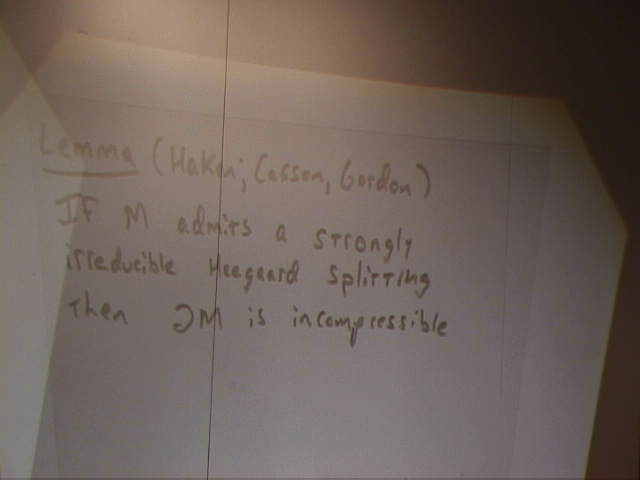 Lemma (Haken; Casson, Gordon)
If M admits a strongly
irreducible Heegaard splitting
then ∂M is incompressible